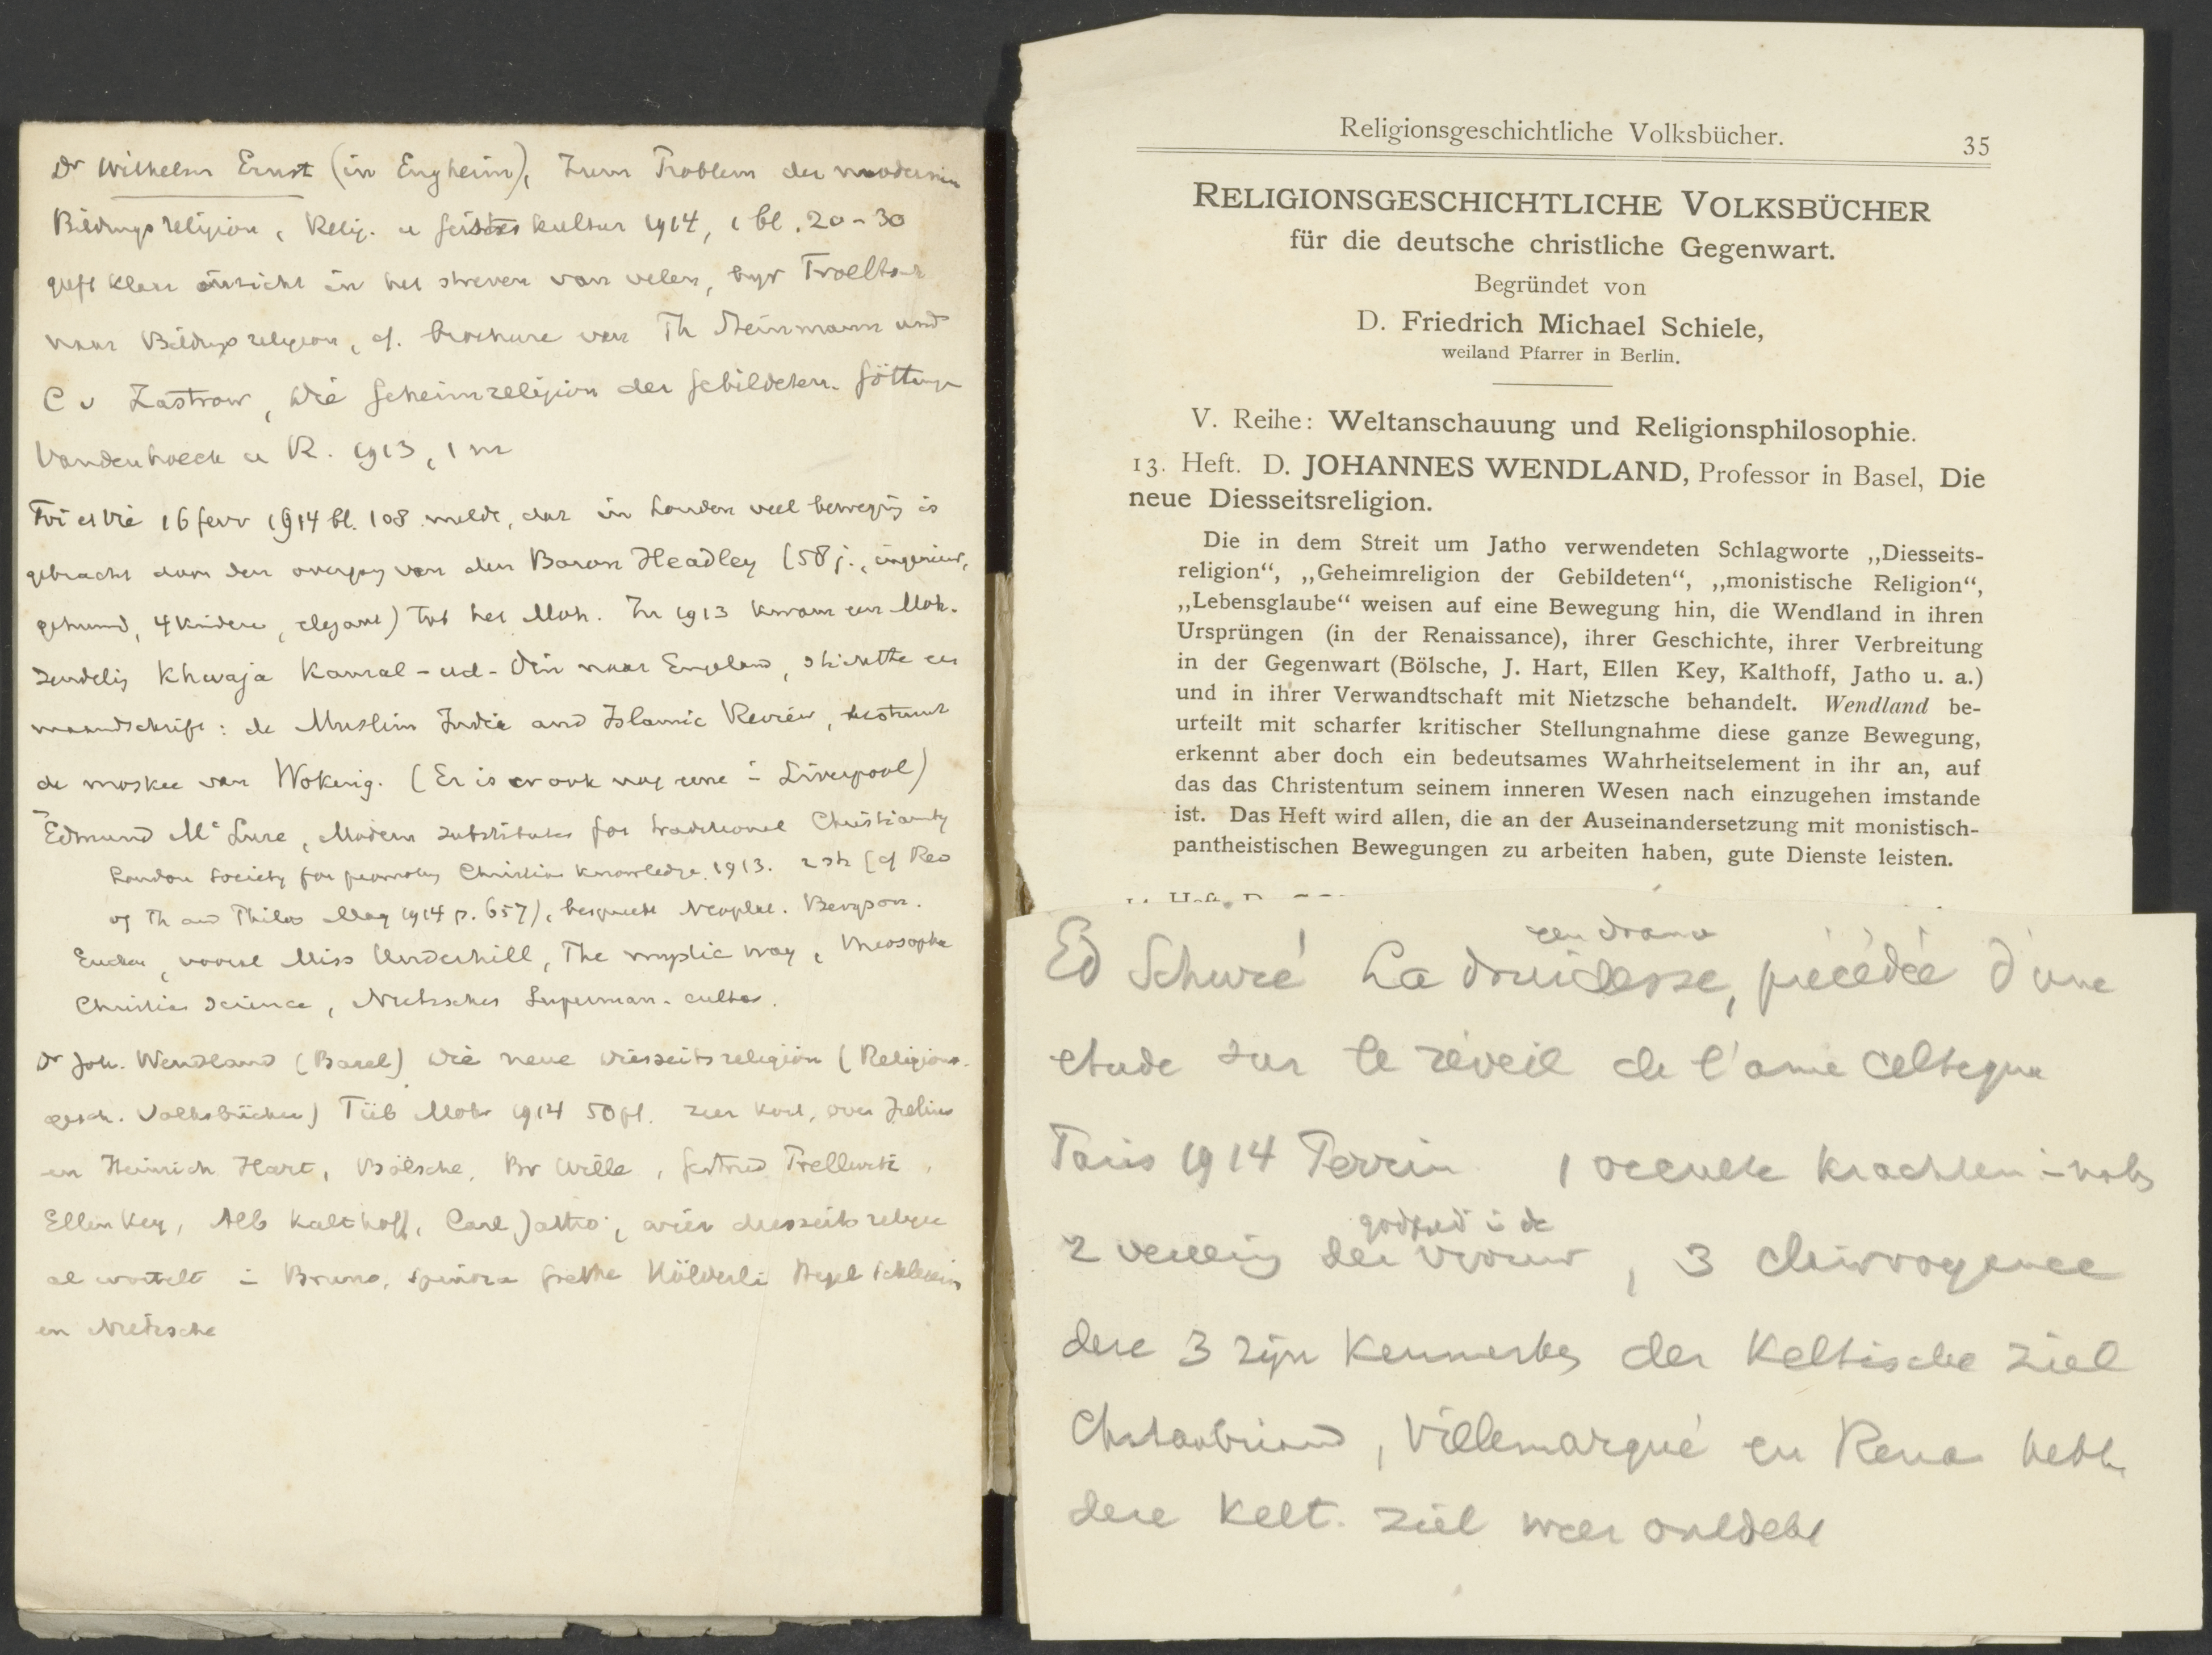 Dr Wilhelm Ernst (in Engheim), Zum Problem der modernen
Bildungsreligion, Relig. u Geisteskultur 1914, 1 bl. 20-30
geeft klaar inzicht in het streven van velen, bijv Troeltsch
naar Bildungsreligion, cf. brochure van Th Steinmann und
C v Zastrow, Die Geheimreligion der Gebildeten. Göttingen
Vandenhoeck u R. 1913, 1 m
Foi et Vie 16 fevr 1914 bl. 108 meldt, dat in Londen veel beweging is
gebracht door den overgang van den Baron Headley (58 j., ingenieur,
gehuwd, 4 kinderen, elegant) tot het Moh. In 1913 kwam een Moh.
zendeling Khwaja Kamal-ud-Din naar Engeland, stichtte een
maandschrift: de Muslim India and Islamic Review, bestuurt
de moskee van Woking. (Er is er ook nog eene in Liverpool)
Edmund Mc Lure, Modern substitutes for traditional Christianity
London Society for promoting Christian knowledge. 1913. 2 sh (cf Rev
of Th and Philos May 1914 p. 657), bespreekt Neoplat. Bergson.
Eucken, vooral Miss Underhill, The mystic way, theosophie
Christian Science, Nietzsches Superman-cultus.
Dr Joh. Wendland (Basel) Die neue Diesseitsreligion (Religions-
gesch. Volksbücher) Tüb Mohr 1914 50 pf. zeer kort, over Julius
en Heinrich Hart, Bölsche, Br Wille, Gertrud Prellwitz,
Ellen Key, Alb Kalthoff, Carl Jatho, wier diesseits religie
al wortelt in Bruno, Spinoza Goethe Hölderlin Hegel Schleierm
en Nietzsche
Religionsgeschichtliche Volksbücher. 35
RELIGIONSGESCHICHTLICHE VOLKSBÜCHER
für die deutsche christliche Gegenwart.
Begründet von
D. Friedrich Michael Schiele,
weiland Pfarrer in Berlin.
V. Reihe: Weltanschauung und Religionsphilosophie.
13. Heft. D. JOHANNES WENDLAND, Professor in Basel, Die
neue Diesseitsreligion.
Die in dem Streit um Jatho verwendeten Schlagworte „Diesseits-
religion“, „Geheimreligion der Gebildeten“, „monistische Religion“,
„Lebensglaube“ weisen auf eine Bewegung hin, die Wendland in ihren
Ursprüngen (in der Renaissance), ihrer Geschichte, ihrer Verbreitung
in der Gegenwart (Bölsche, J. Hart, Ellen Key, Kalthoff, Jatho u. a.)
und in ihrer Verwandtschaft mit Nietzsche behandelt. Wendland be-
urteilt mit scharfer kritischer Stellungnahme diese ganze Bewegung,
erkennt aber doch ein bedeutsames Wahrheitselement in ihr an, auf
das das Christentum seinem inneren Wesen nach einzugehen imstande
ist. Das Heft wird allen, die an der Auseinandersetzung mit monistisch-
pantheistischen Bewegungen zu arbeiten haben, gute Dienste leisten.
een drama
Ed Schuré La druidesse, précédée d'une
etude sur le réveil de l'ame celtique
Paris 1914 Perrin 1 occulte krachten in natuur
godheid in de
2 der vrouw, 3 clairvoyance
deze 3 zijn kenmerken der Keltische ziel
Chateaubriand, Villemarqué en Renan hebben
deze Kelt. ziel weer ontdekt